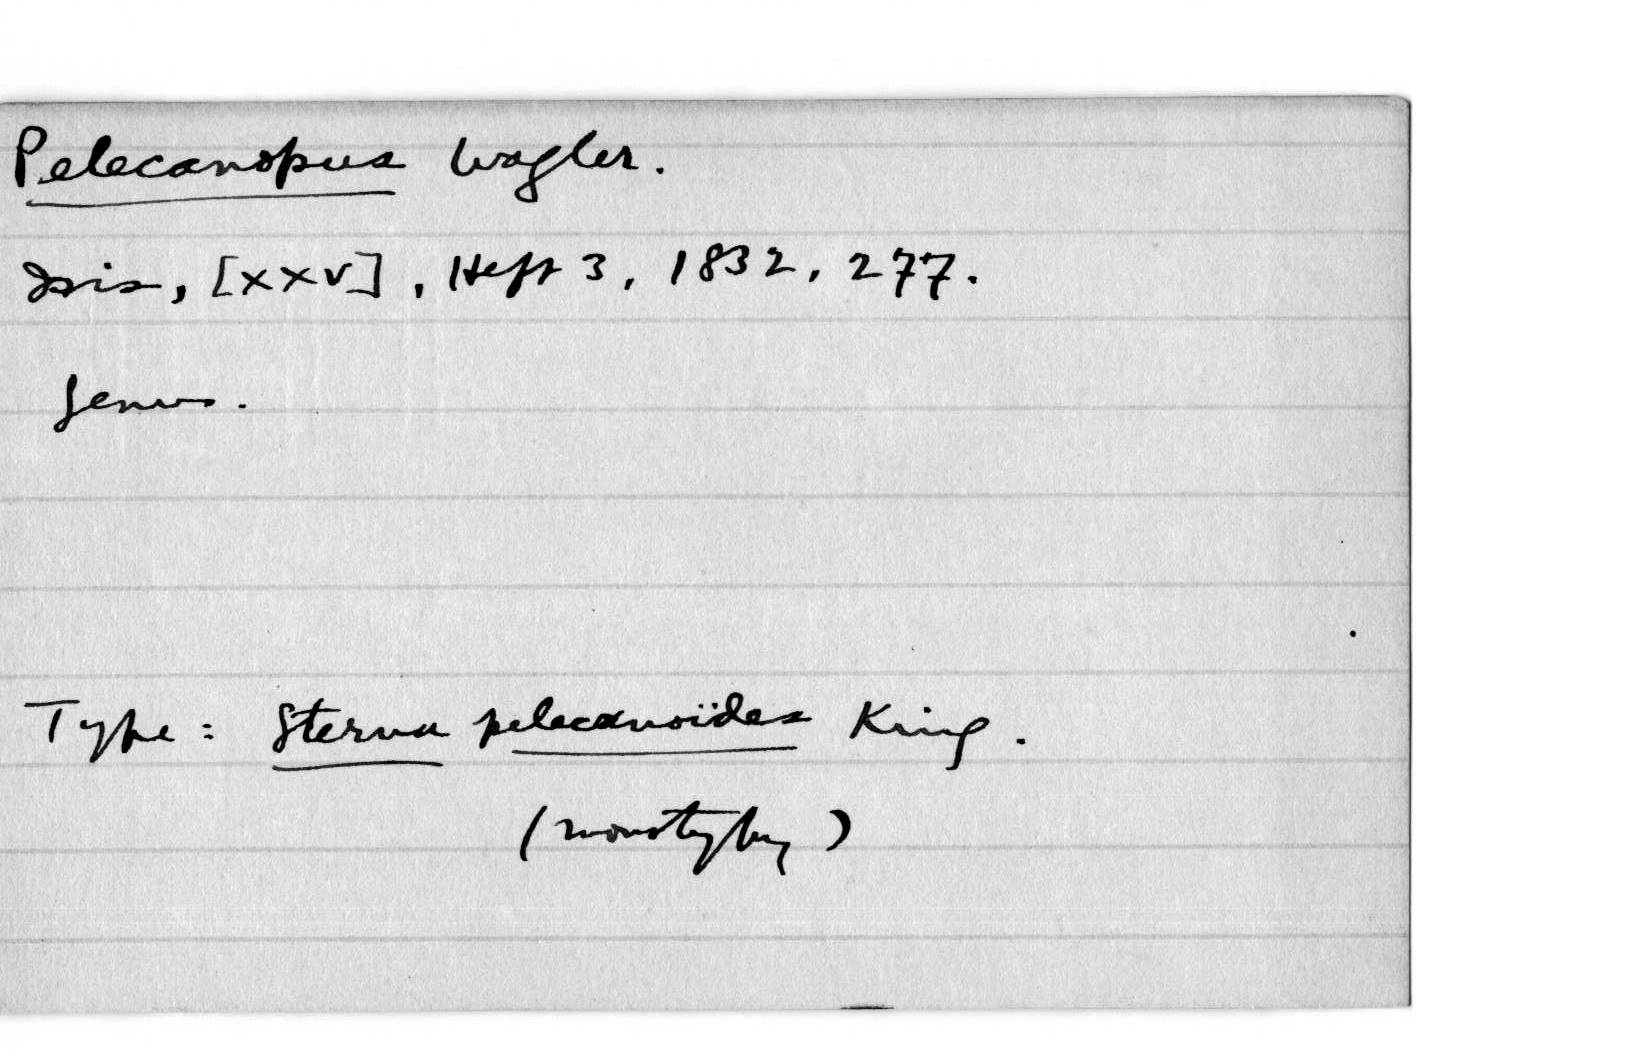 Pelecanopus Wagler.
Isis, [XXV], Heft 3, 1832, 277.
Genus.
Type: Sterna pelecanoïdes King.
(monotypy)